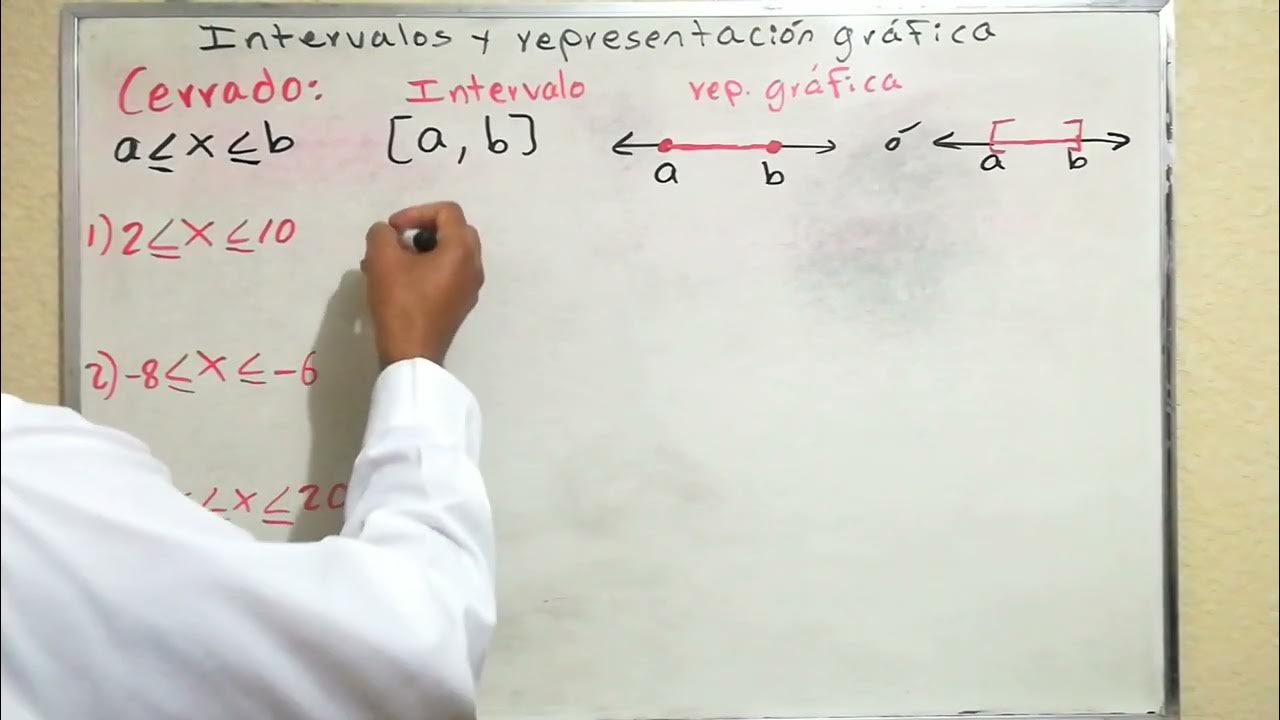 Intervalos y representación gráfica
Cerrado: Intervalo rep. gráfica
a≤x≤b [a, b] a b ó a b
1) 2≤x≤10
2) -8≤x≤-6
≤x≤20